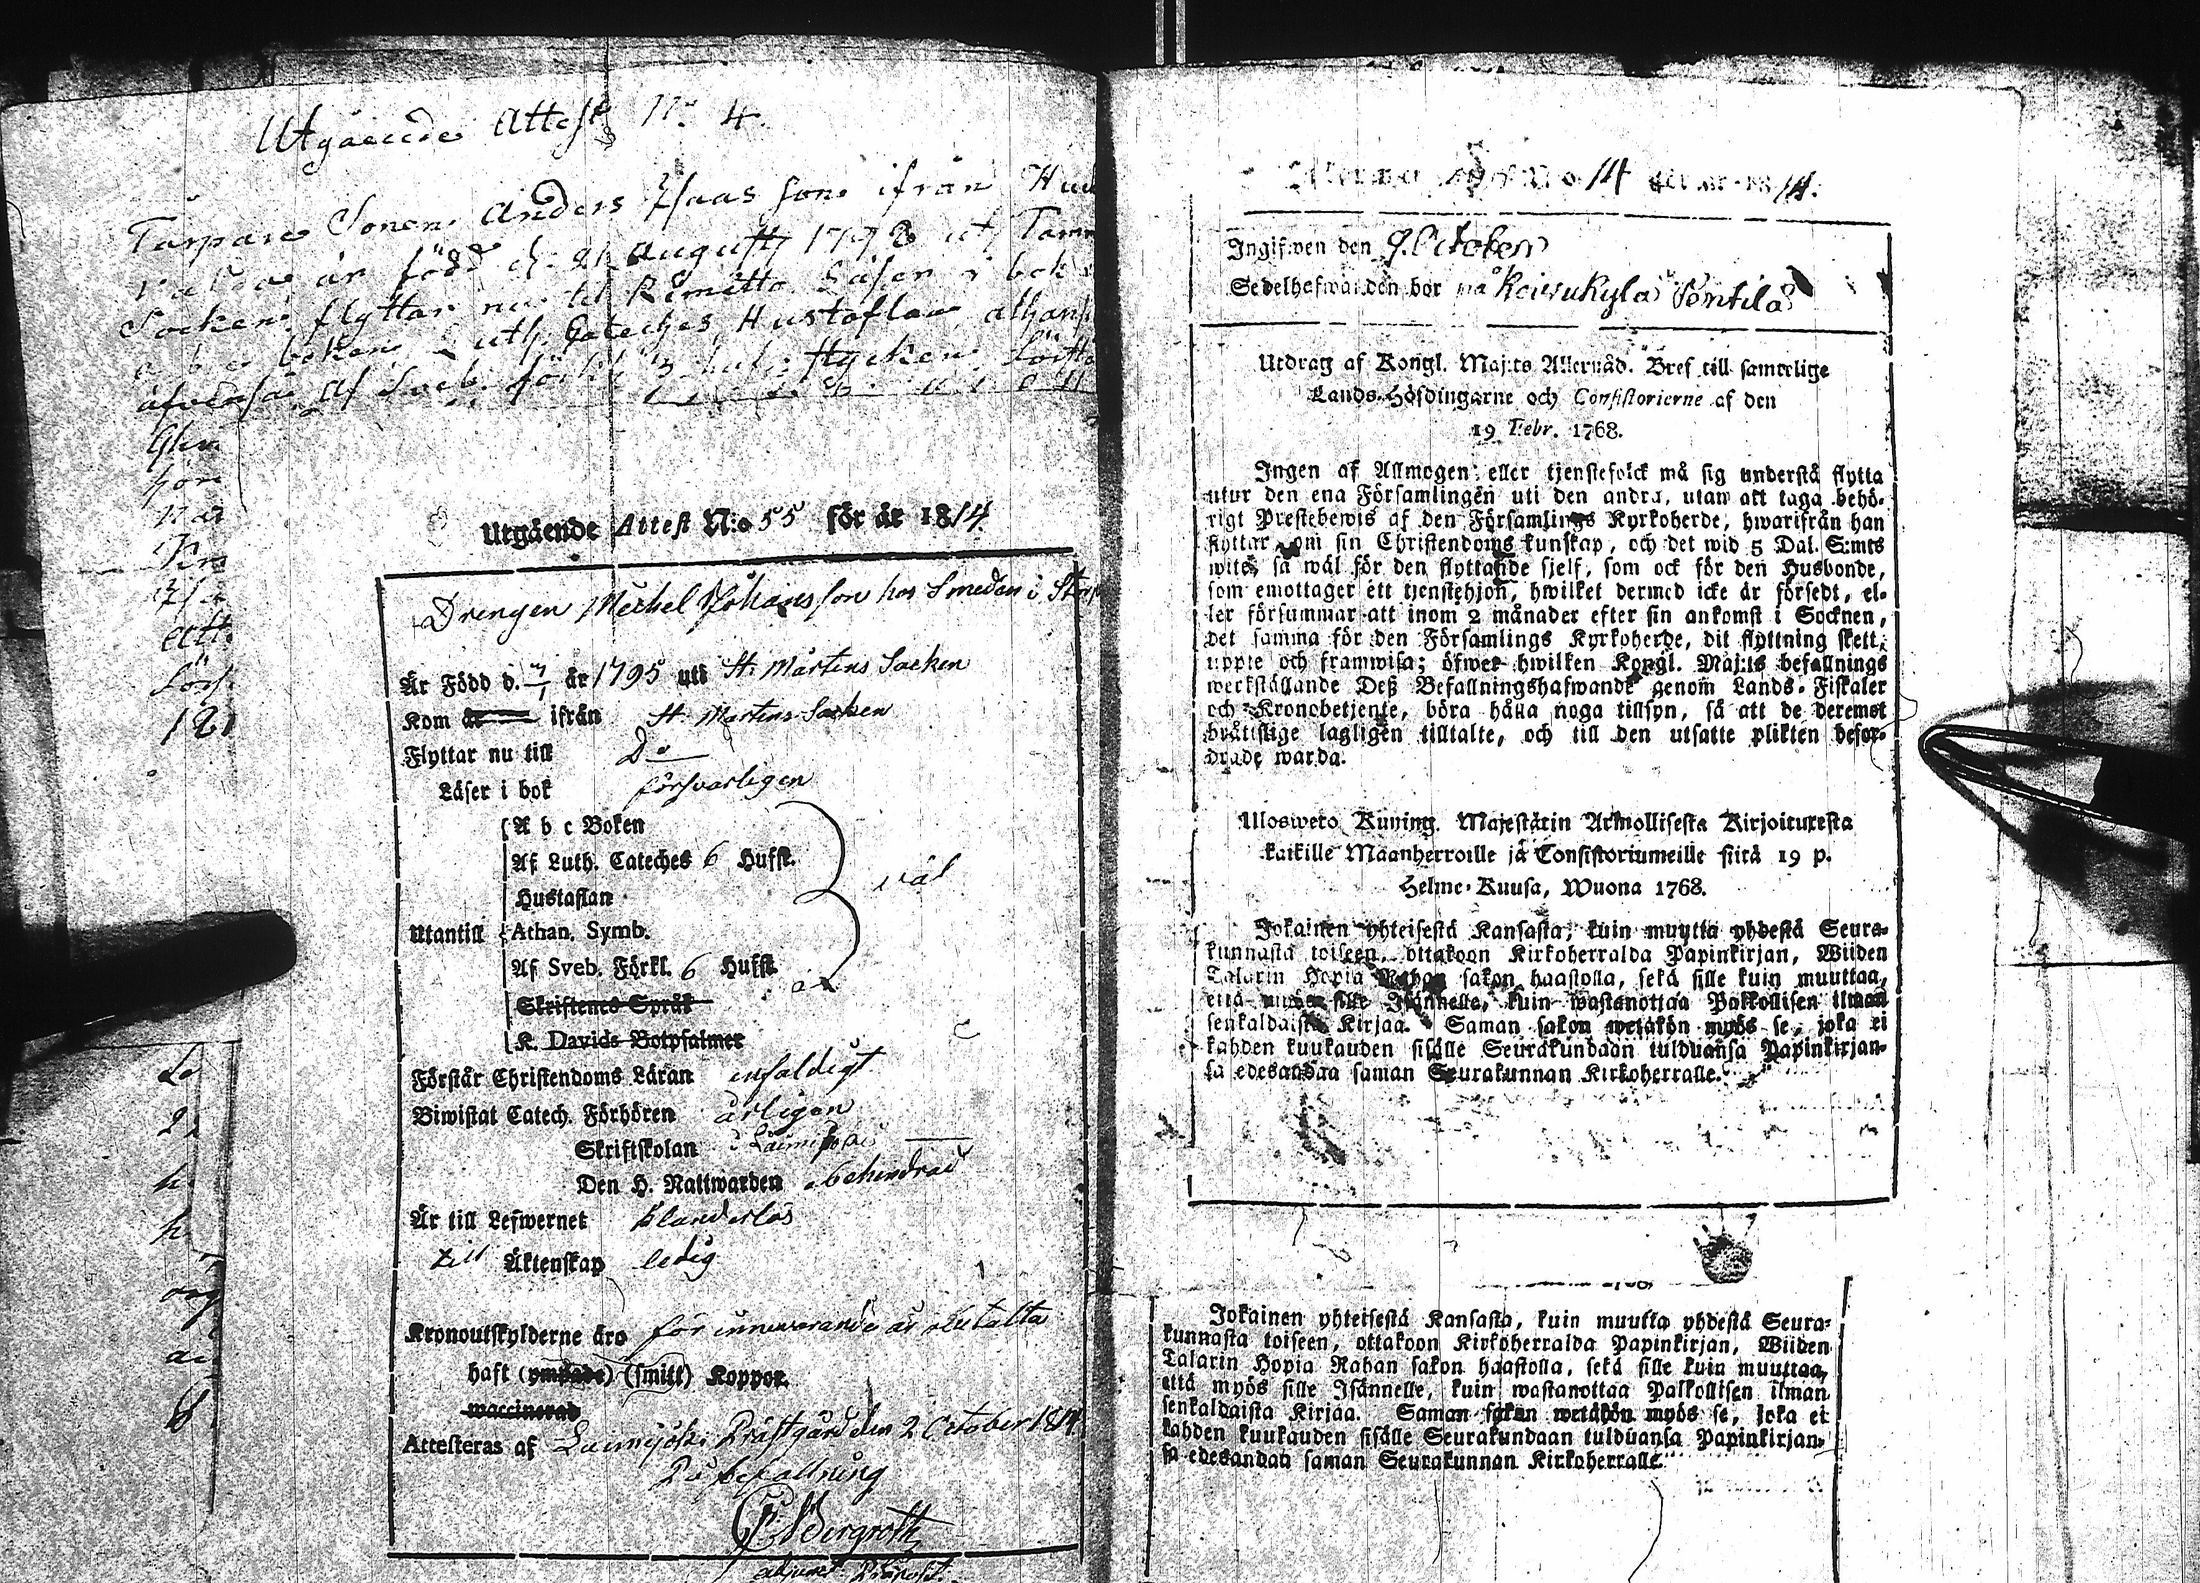 Utgående Attest No 4
Torpare Sonen Anders Isaas son ifrån
är född d. 21 August 1792 uti
Socken flyttar nu til Rimitto Läser i bok
a b c boken Luth. Cateches Hustaflan athan
af Sveb. förkl. stycken
Utgående Attest N:o 55 för år 1814.
Drengen Michel Johansson hos Smeden i
Är Född d. 7/1 år 1795 uti St. Mårtens Socken
Kom år ifrån St. Mårtens Socken
Flyttar nu till Do
Läser i bok försvarligen
A b c Boken
Af Luth. Cateches 6 Hufst.
Hustaflan
väl
Utantill Athan. Symb.
Af Sveb. Förkl. 6 Hufst.
Skriftenes Språk
K. Davids Botpsalmer
Förstår Christendoms Läran enfaldigt
Biwistat Catech. Förhören årligen
Skriftskolan
Den H. Nattwarden obehindrad
Är till Lefwernet klanderlös
till Äktenskap ledig
Kronoutskylderne äro för innevarande år betalta
haft (ympade) (smitt) Koppor.
waccinerad
Attesteras af Lainijoki Prästgård den 2 October 1814
På befallning
Bergroth
adjunct
N:o 14 för år 1814.
Ingifwen den 9. October
Sedelhafwanden bor på Koivukylä Penttilä
Utdrag af Kongl. Maj:ts Allernåd. Bref till samtelige
Lands-Höfdingarne och Consistorierne af den
19 Febr. 1768.
Ingen af Allmogen eller tjenstefolck må sig understå flytta
utur den ena Församlingen uti den andra, utan att taga behö-
rigt Prestebewis af den Församlings Kyrkoherde, hwarifrån han
flyttar, om sin Christendoms kunskap, och det wid 5 Dal. S:mts
wite, så wäl för den flyttande sjelf, som ock för den Husbonde,
som emottager ett tjenstehjon, hwilket dermed icke är försedt, el-
ler försummar att inom 2 månader efter sin ankomst i Socknen,
det samma för den Församlings Kyrkoherde, dit flyttning skett,
uppte och framwisa; öfwer hwilken Kongl. Maj:ts befallnings
werkställande Deß Befallningshafwande genom Lands-Fiskaler
och Kronobetjente, böra hålla noga tillsyn, så att de deremot
bråttslige lagligen tilltalte, och till den utsatte plikten befor-
drade warda.
Ulosweto Kuning. Majestätin Armollisesta Kirjoituxesta
kaikille Maanherroille ja Consistoriumeille siitä 19 p.
Helme-Kuusa, Wuona 1768.
Jokainen yhteisestä Kansasta, kuin muutta yhdestä Seura-
kunnasta toiseen, ottakoon Kirkoherralda Papinkirjan, Wiiden
Talarin Hopia Rahan sakon haastolla, sekä sille kuin muuttaa,
että myös sille Isännelle, kuin wastanottaa Palkollisen ilman
senkaldaista Kirjaa. Saman sakon wetäkön myös se, joka ei
kahden kuukauden sisälle Seurakundaan tulduansa Papinkirjan-
sa edesandaa saman Seurakunnan Kirkoherralle.
Jokainen yhteisestä Kansasta, kuin muutta yhdestä Seura-
kunnasta toiseen, ottakoon Kirkoherralda Papinkirjan, Wiiden
Talarin Hopia Rahan sakon haastolla, sekä sille kuin muuttaa,
että myös sille Isännelle, kuin wastanottaa Palkollisen ilman
senkaldaista Kirjaa. Saman sakon wetäkön myös se, joka ei
kahden kuukauden sisälle Seurakundaan tulduansa Papinkirjan-
sa edesandaa saman Seurakunnan Kirkoherralle.